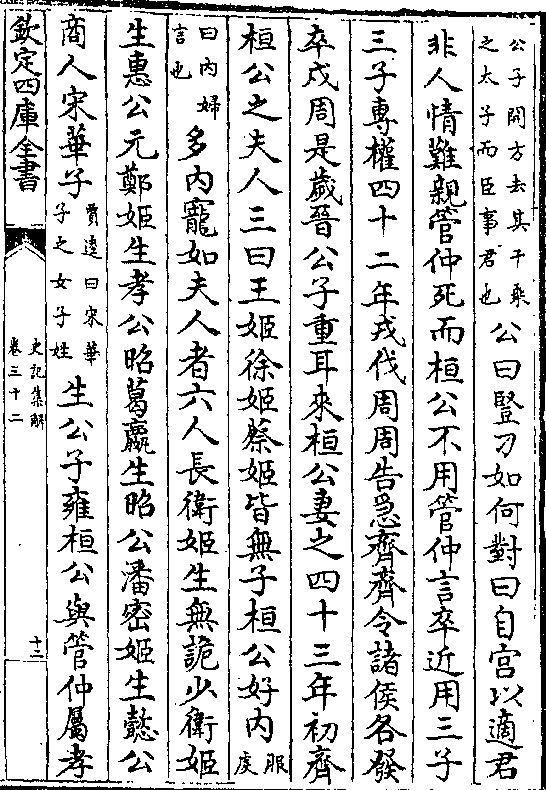 公子開方去其千乘
之太子而臣事君也
公曰豎刀如何對曰自宮以適君
非人情難親管仲死而桓公不用管仲言卒近用三子
三子專權四十二年戎伐周周告急齊齊令諸侯各發
卒戍周是歲晉公子重耳來桓公妻之四十三年初齊
桓公之夫人三曰王姬徐姬蔡姬皆無子桓公好內
服
虔
曰內婦
言也
多內寵如夫人者六人長衛姬生無詭少衛姬
生惠公元鄭姬生孝公昭葛嬴生昭公潘密姬生懿公
商人宋華子
賈逵曰宋華
子之女子姓
生公子雍桓公與管仲屬孝
欽定四庫全書
史記集解
卷三十二
十二